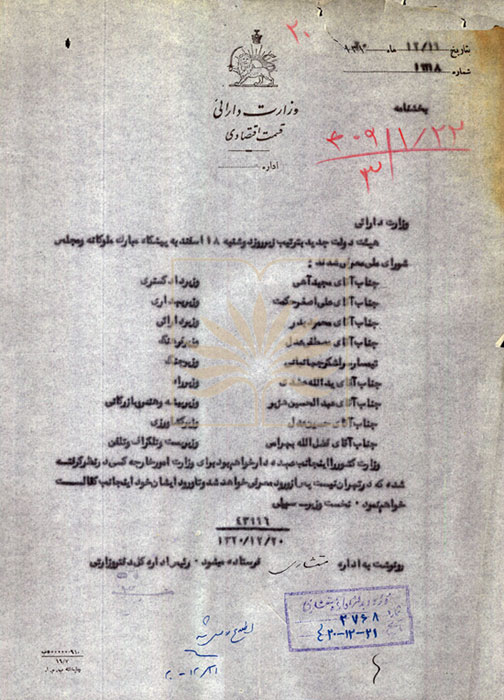 ۲۰
بتاریخ ۱۲/۲۱ ماه
شماره
وزارت دارائی
قسمت اقتصادی
اداره
بخشنامه
۴۰۹ ۱/۲۲
۳
وزارت دارائی
هیئت دولت جدید بترتیب زیر روز دوشنبه ۱۸ اسفند به پیشگاه مبارک ملوکانه و مجلس
شورای ملی معرفی شدند :
جناب آقای مجید آهی وزیر دادگستری
جناب آقای علی اصغر حکمت وزیر بهداری
جناب آقای محمود بدر وزیر دارائی
جناب آقای مصطفی عدل وزیر فرهنگ
تیمسار سرلشگر جهانبانی وزیر جنگ
جناب آقای یدالله عضدی وزیر راه
جناب آقای عبدالحسین هژیر وزیر پیشه و هنر و بازرگانی
جناب آقای حسین عدل وزیر کشاورزی
جناب آقای فضل الله بهرامی وزیر پست و تلگراف و تلفن
وزارت کشور را اینجانب عهده دار خواهم بود برای وزارت امور خارجه کسی در نظر گرفته
شده که در تهران نیست پس از ورود معرفی خواهد شد و تا ورود ایشان خود اینجانب کفالت
خواهم نمود . نخست وزیر سهیلی
۴۳۱۱۶
۱۳۲۰/۱۲/۲۰
رونوشت به اداره مستشاری فرستاده میشود . رئیس اداره کل دفتر وزارتی
۲۷۶۸
۲۰-۱۲-۲۱